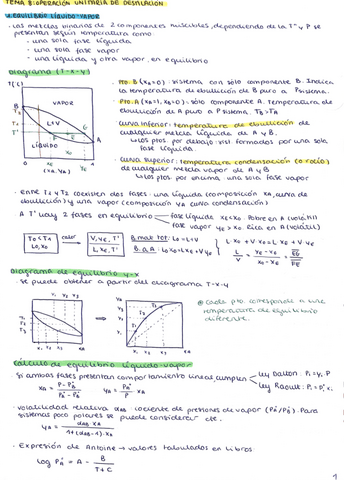 TEMA 5: OPERACIÓN UNITARIA DE DESTILACIÓN
1. EQUILIBRIO LÍQUIDO-VAPOR
· Las mezclas binarias de 2 componentes miscibles, dependiendo de la Tª y P se
presentan según temperatura como
- una sola fase líquida
- una sola fase vapor
- una líquida y otra vapor, en equilibrio
Diagrama (T-x-y)
VAPOR
L+V
LÍQUIDO
· Pto. B (xA=0): sistema con sólo componente B. Indica
la temperatura de ebullición de B puro a P sistema.
· Pto. A (xA=1, xB=0): sólo componente A. Temperatura de
ebullición de A puro a P sistema TB > TA
· Curva inferior: temperatura de ebullición de
cualquier mezcla líquida de A y B.
Los ptos. por debajo: sist formados por una sola
fase líquida.
· Curva superior: temperatura condensación (o rocío)
de cualquier mezcla vapor de A y B
Los ptos por encima: una sola fase vapor
· Entre T1 y T2 coexisten dos fases: una líquida (composición xA, curva de
ebullición) y una vapor (composición yA curva condensación)
A T' hay 2 fases en equilibrio
fase líquida xE<x0. Pobre en A (volátil)
fase vapor yE>x0. Rica en A (volátil)
L0, x0
calor
V, yE, T'
L, xE, T'
B. mat. tot: L0=L+V
B. m A: L0·x0=L·xE+V·yE
L·x0 + V·x0 = L·xE + V·yE
Diagrama de equilibrio y-x
· Se puede obtener a partir del diagrama T-x-y
cada pto. corresponde a una
temperatura de equilibrio
diferente.
Cálculo de equilibrio líquido-vapor
· Si ambas fases presentan comportamiento lineal, cumplen
Ley Dalton: Pi=yi·P
Ley Raoult: Pi=Pi°·xi
· Volatilidad relativa αAB: cociente de presiones de vapor (PA°/PB°). Para
sistemas poco polares se puede considerar cte.
yA = αAB·xA / 1+(αAB-1)·xA
· Expresión de Antoine → valores tabulados en libros
log PA° = A - B / T+C
1